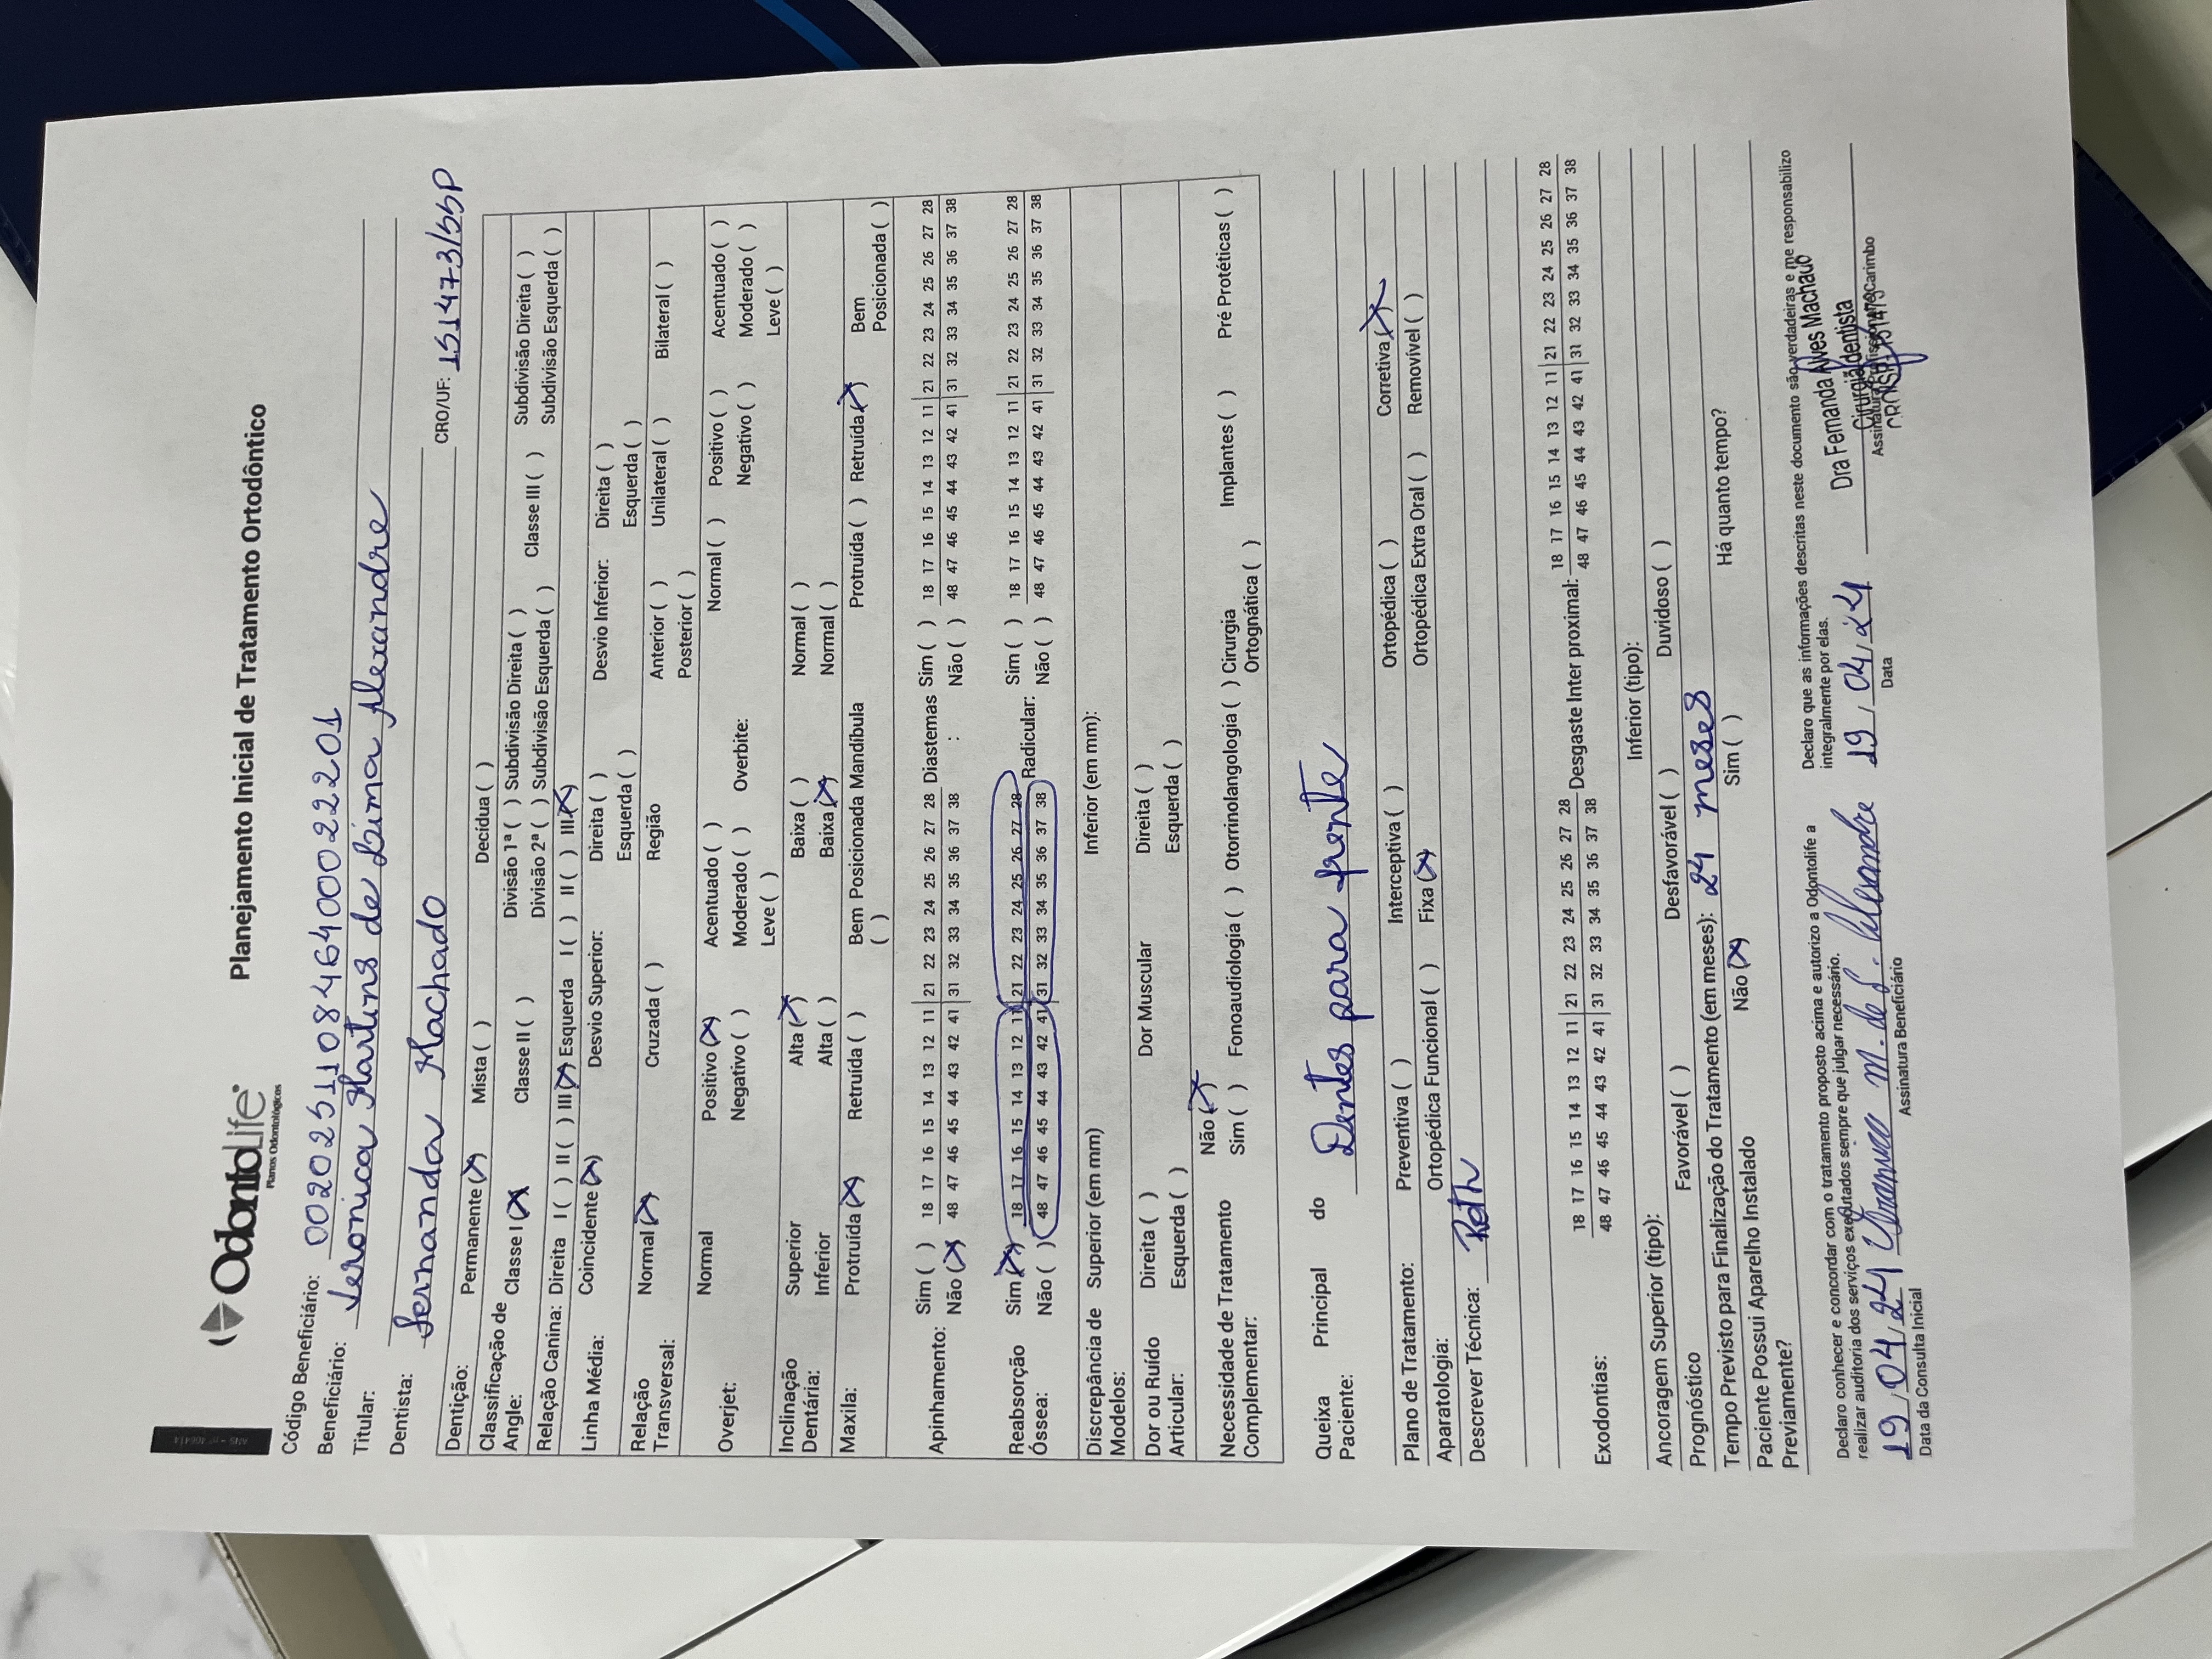 OdontoLife®
Planos Odontológicos
Planejamento Inicial de Tratamento Ortodôntico
Código Beneficiário: 00202511084640002201
Beneficiário: Veronica Martins de Lima Alexandre
Titular:
Dentista: Fernanda Machado CRO/UF: 151473/SSP
Dentição: Permanente (X) Mista ( ) Decídua ( )
Classificação de Angle: Classe I (X) Classe II ( ) Divisão 1ª ( ) Subdivisão Direita ( ) Classe III ( ) Subdivisão Direita ( )
Divisão 2ª ( ) Subdivisão Esquerda ( ) Subdivisão Esquerda ( )
Relação Canina: Direita I ( ) II ( ) III (X) Esquerda I ( ) II ( ) III (X)
Linha Média: Coincidente (X) Desvio Superior: Direita ( ) Desvio Inferior: Direita ( )
Esquerda ( ) Esquerda ( )
Relação Transversal: Normal (X) Cruzada ( ) Região Anterior ( ) Unilateral ( ) Bilateral ( )
Posterior ( )
Overjet: Normal Positivo (X) Acentuado ( ) Overbite: Normal ( ) Positivo ( ) Acentuado ( )
Negativo ( ) Moderado ( ) Negativo ( ) Moderado ( )
Leve ( ) Leve ( )
Inclinação Superior Alta (X) Baixa ( ) Normal ( )
Dentária: Inferior Alta ( ) Baixa (X) Normal ( )
Maxila: Protruída (X) Retruída ( ) Bem Posicionada ( ) Mandíbula Protruída ( ) Retruída (X) Bem Posicionada ( )
Apinhamento: Sim ( ) 18 17 16 15 14 13 12 11 | 21 22 23 24 25 26 27 28 Diastemas: Sim ( ) 18 17 16 15 14 13 12 11 | 21 22 23 24 25 26 27 28
Não (X) 48 47 46 45 44 43 42 41 | 31 32 33 34 35 36 37 38 Não ( ) 48 47 46 45 44 43 42 41 | 31 32 33 34 35 36 37 38
Reabsorção Sim (X) 18 17 16 15 14 13 12 11 | 21 22 23 24 25 26 27 28 Radicular: Sim ( ) 18 17 16 15 14 13 12 11 | 21 22 23 24 25 26 27 28
Óssea: Não ( ) 48 47 46 45 44 43 42 41 | 31 32 33 34 35 36 37 38 Não ( ) 48 47 46 45 44 43 42 41 | 31 32 33 34 35 36 37 38
Discrepância de Modelos: Superior (em mm) Inferior (em mm):
Dor ou Ruído Direita ( ) Dor Muscular Direita ( )
Articular: Esquerda ( ) Esquerda ( )
Necessidade de Tratamento Não (X)
Complementar: Sim ( ) Fonoaudiologia ( ) Otorrinolangologia ( ) Cirurgia Ortognática ( ) Implantes ( ) Pré Protéticas ( )
Queixa Principal do Paciente: Dentes para frente
Plano de Tratamento: Preventiva ( ) Interceptiva ( ) Ortopédica ( ) Corretiva (X)
Aparatologia: Ortopédica Funcional ( ) Fixa (X) Ortopédica Extra Oral ( ) Removível ( )
Descrever Técnica: Roth
Exodontias: 18 17 16 15 14 13 12 11 | 21 22 23 24 25 26 27 28 Desgaste Inter proximal: 18 17 16 15 14 13 12 11 | 21 22 23 24 25 26 27 28
48 47 46 45 44 43 42 41 | 31 32 33 34 35 36 37 38 48 47 46 45 44 43 42 41 | 31 32 33 34 35 36 37 38
Ancoragem Superior (tipo): Inferior (tipo):
Prognóstico Favorável ( ) Desfavorável ( ) Duvidoso ( )
Tempo Previsto para Finalização do Tratamento (em meses): 24 meses
Paciente Possui Aparelho Instalado Previamente? Não (X) Sim ( ) Há quanto tempo?
Declaro conhecer e concordar com o tratamento proposto acima e autorizo a Odontolife a
realizar auditoria dos serviços executados sempre que julgar necessário.
Declaro que as informações descritas neste documento são verdadeiras e me responsabilizo
integralmente por elas.
19/04/24 Veronica M. de L. Alexandre 19/04/24
Dra Fernanda Alves Machado
Cirurgiã Dentista
Data da Consulta Inicial Assinatura Beneficiário Data